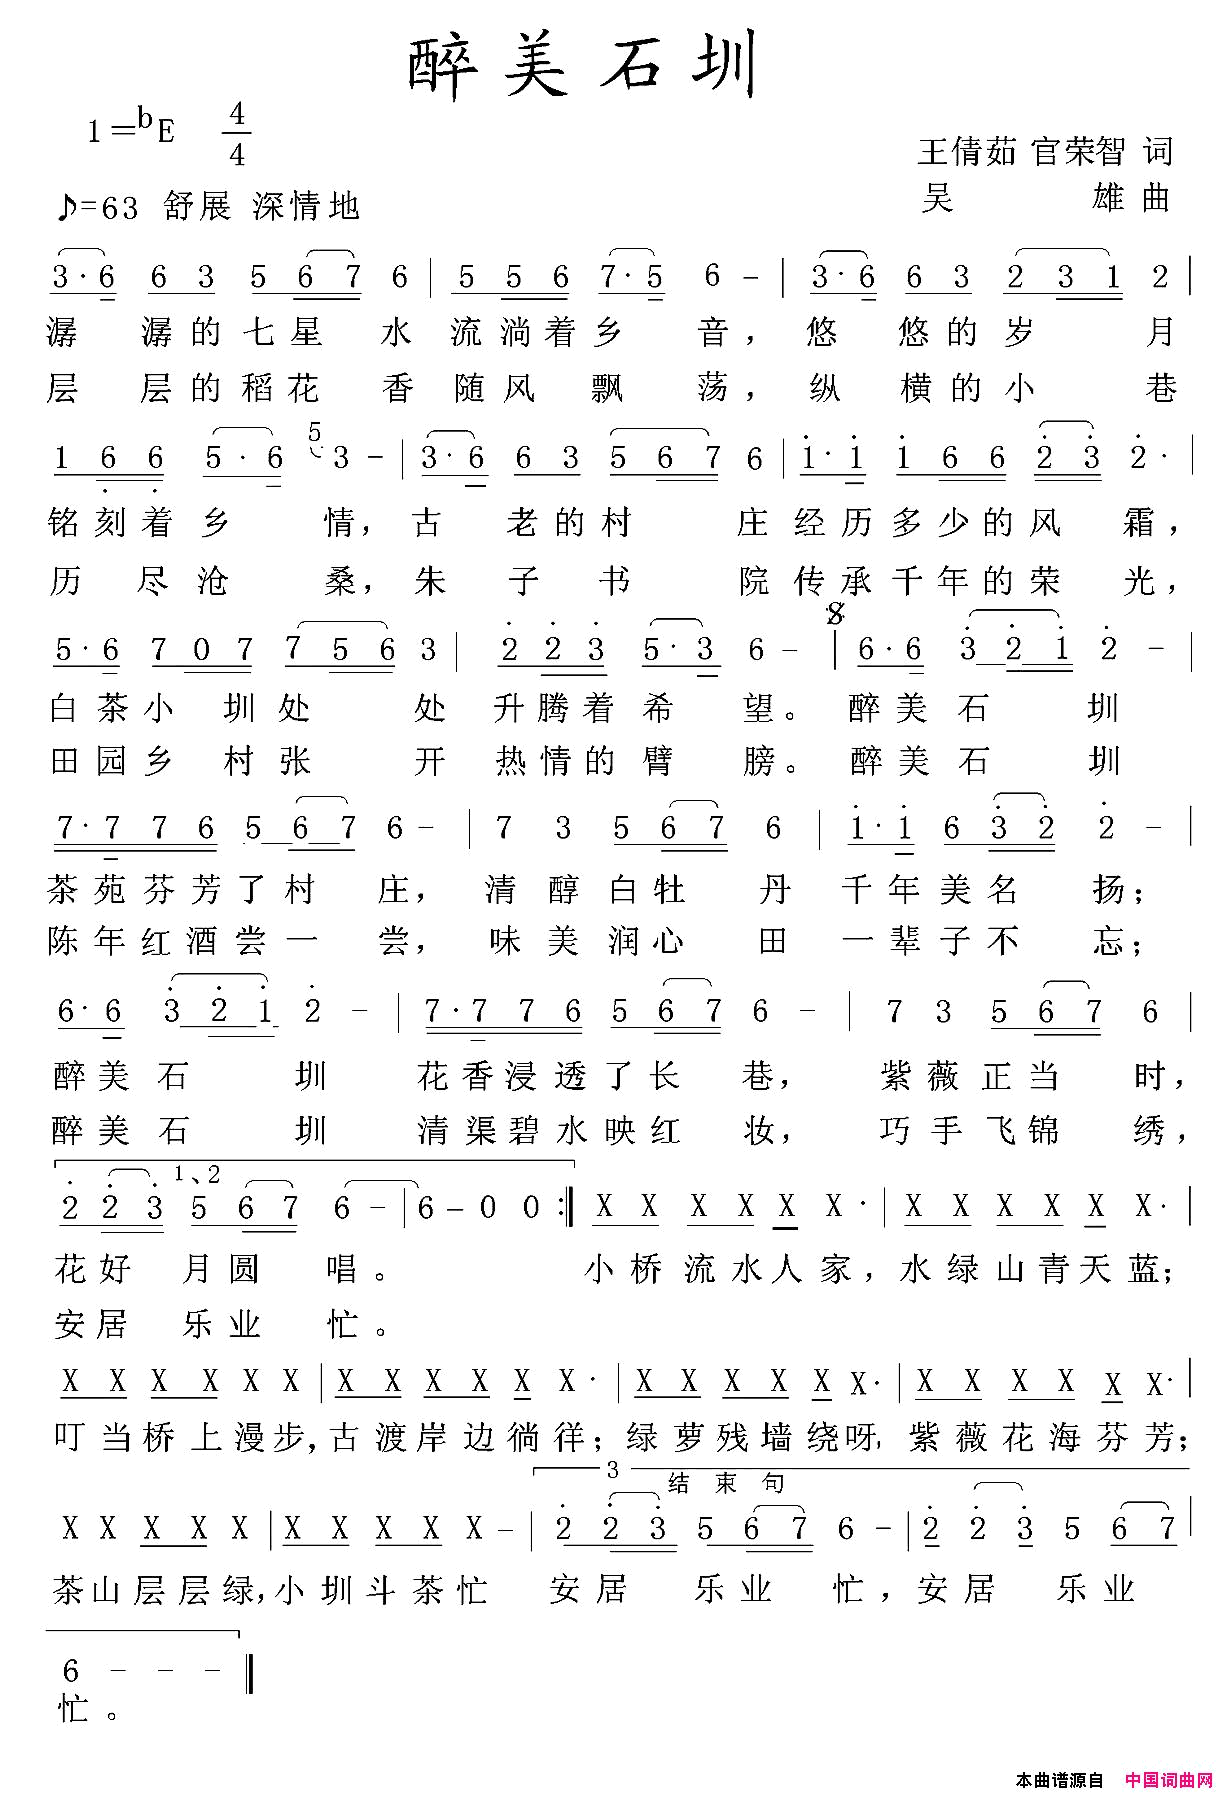 醉美石圳
1=bE 4/4
王倩茹 官荣智 词
♪=63 舒展 深情地
吴 雄 曲
3·6 6 3 5 6 7 6 | 5 5 6 7·5 6 － | 3·6 6 3 2 3 1 2 |
潺 潺的七星 水 流淌着乡 音，悠 悠的岁 月
层 层的稻花 香 随风 飘 荡，纵 横的小 巷
1 6 6 5·6 5 3 － | 3·6 6 3 5 6 7 6 | 1·1 1 6 6 2 3 2· |
铭刻着乡 情，古 老的村 庄 经历多少的风 霜，
历 尽沧 桑，朱 子 书 院 传承千年的荣 光，
5·6 7 0 7 7 5 6 3 | 2 2 3 5·3 6 － | 6·6 3 2 1 2 － |
白茶小 圳处 处 升腾着希 望。 醉美石 圳
田园乡 村张 开 热情的臂 膀。 醉美石 圳
7·7 7 6 5 6 7 6 － | 7 3 5 6 7 6 | 1·1 6 3 2 2 － |
茶苑芬芳了村 庄， 清醇白牡 丹 千年美名 扬；
陈年红酒尝一 尝， 味美润心 田 一辈子不 忘；
6·6 3 2 1 2 － | 7·7 7 6 5 6 7 6 － | 7 3 5 6 7 6 |
醉美石 圳 花香浸透了长 巷， 紫薇正当 时，
醉美石 圳 清渠碧水映红 妆， 巧手飞锦 绣，
1、2
2 2 3 5 6 7 6 － | 6 － 0 0 :‖ X X X X X X· | X X X X X X· |
花好 月圆 唱。 小桥流水人家，水绿山青天蓝；
安居 乐业 忙。
X X X X X X | X X X X X X· | X X X X X X· | X X X X X X· |
叮当桥上漫步，古渡岸边徜徉；绿萝残墙绕呀，紫薇花海芬芳；
3
结束句
X X X X X | X X X X X － | 2 2 3 5 6 7 6 － | 2 2 3 5 6 7 |
茶山层层绿，小圳斗茶忙 安居 乐业 忙，安居 乐业
6 － － － ‖
忙。
本曲谱源自 中国词曲网